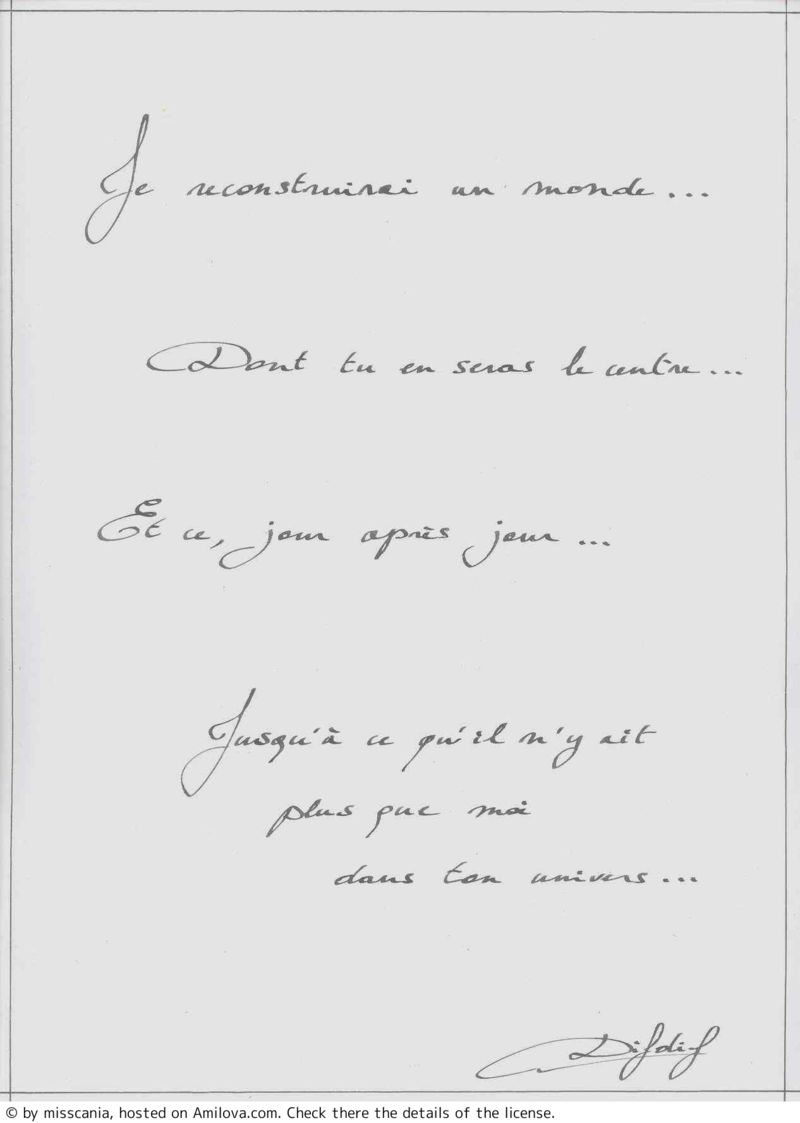 Je reconstruirai un monde...
Dont tu en seras le centre...
Et ce, jour après jour...
Jusqu'à ce qu'il n'y ait
plus que moi
dans ton univers...
Difdif
© by misscania, hosted on Amilova.com. Check there the details of the license.